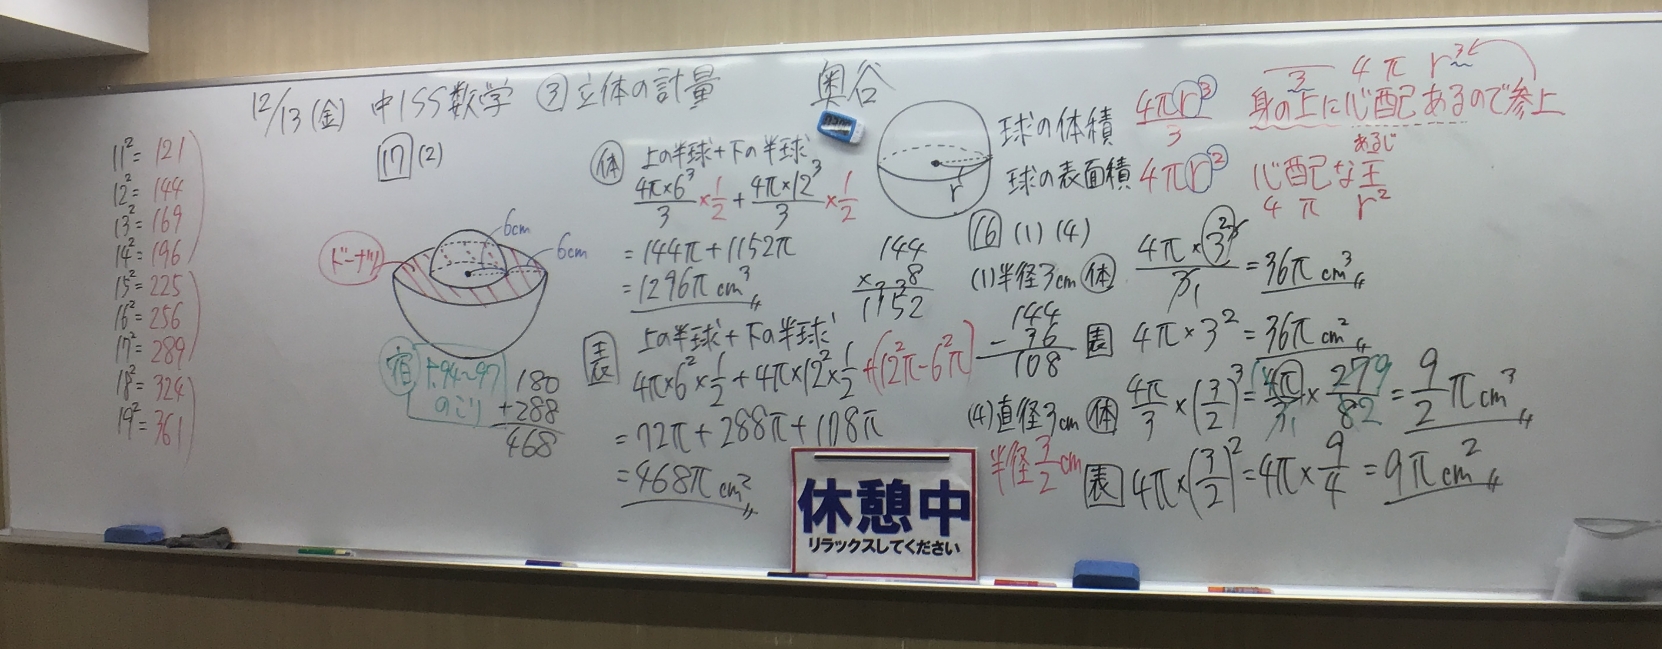 12/13(金) 中1SS数学 ③立体の計量 奥谷
11²=121
12²=144
13²=169
14²=196
15²=225
16²=256
17²=289
18²=324
19²=361
17 (2)
6cm
6cm
ドーナツ
宿 P.94~97
のこり
180
+288
468
体 上の半球+下の半球
4π×6³/3 ×1/2 + 4π×12³/3 ×1/2
=144π+1152π
=1296π cm³
144
×8
1152
表 上の半球+下の半球
4π×6²×1/2+4π×12²×1/2+(12²π-6²π)
=72π+288π+108π
=468π cm²
144
-36
108
r
球の体積 4πr³/3
球の表面積 4πr²
3 4 π r³
身の上に心配あるので参上
あるじ
心配な主
4 π r²
16 (1) (4)
(1)半径3cm 体 4π×3³/3 =36π cm³
表 4π×3²=36π cm²
(4)直径3cm 体 4π/3 ×(3/2)³=4π/3 × 27/8 = 9/2 π cm³
半径3/2 cm
表 4π×(3/2)²=4π×9/4=9π cm²
休憩中
リラックスしてください